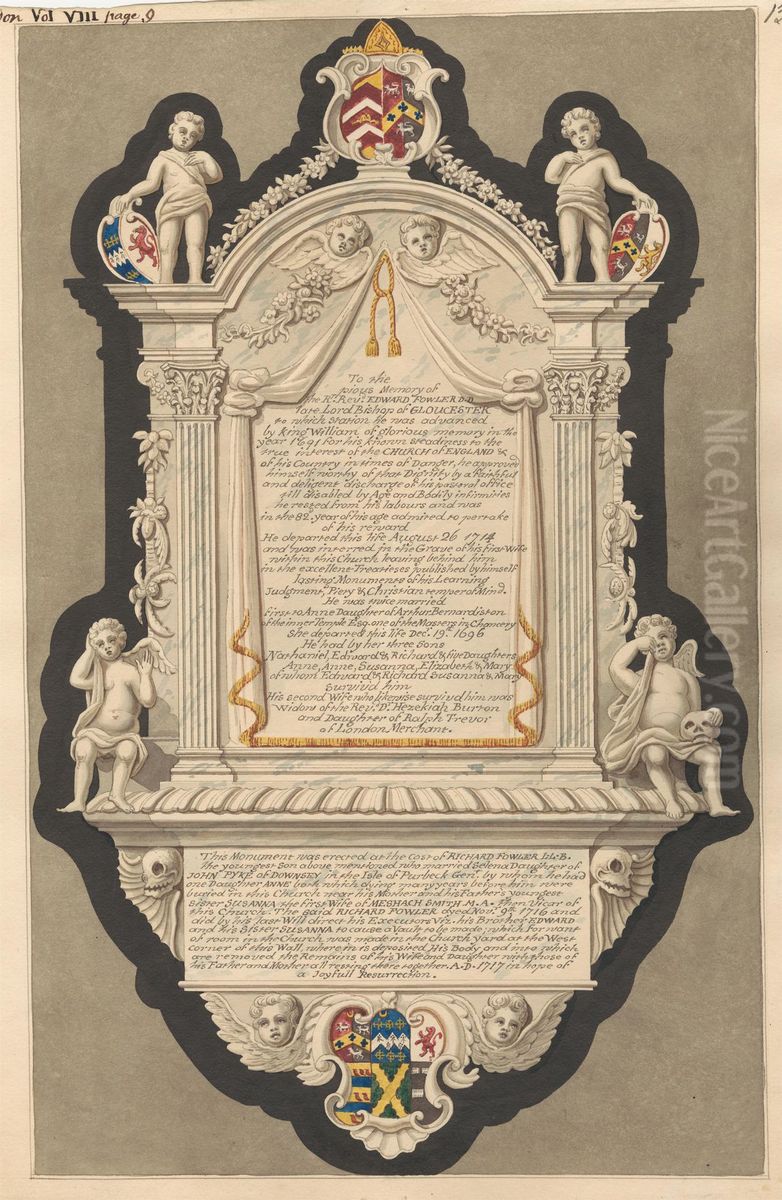 don Vol VIII page, 9
To the
pious Memory of
the Rt. Revd. EDWARD FOWLER D.D
late Lord Bishop of GLOUCESTER
to which station he was advanced
by King William of glorious memory in the
year 1691 for his known steadiness to the
true interest of the CHURCH of ENGLAND &
of his Country in times of Danger, he approved
himself worthy of that Dignity by a faithful
and deligent discharge of his pastoral office
till disabled by Age and Bodily infirmities
he rested from his labours and was
in the 82. year of his age admited to pertake
of his reward
He departed this life August 26 1714
and was interred in the Grave of his first Wife
within this Church leaving behind him
in the excellent Treatieses published by himself
lasting Monuments of his Learning
Judgment, Piety & Christian temper of Mind.
He was twice married
first to Anne Daughter of Arthur Bernardiston
of the inner Temple Esq. one of the Masters in Chancery
She departed this life Dec. 19th. 1696
He had by her three Sons
Nathaniel, Edward & Richard & five Daughters
Anne, Anne, Susanna, Elizabeth & Mary
of whom Edward & Richard Susanna & Mary
Survivd him
His second Wife who likewise survivd him was
Widow of the Revd. Dr. Hezekiah Burton
and Daughter of Ralph Trevor
of London Merchant.
This Monument was erected at the Cost of RICHARD FOWLER LL.B.
the youngest Son above mentioned who married Selena Daughter of
JOHN PYKE of DOWNSEY in the Isle of Purbeck Gent. by whom he had
one Daughter ANNE both which dying many years before him were
buried in this Church near his Mother and his Father's youngest
Sister SUSANNA the first Wife of MESHACH SMITH M.A. then Vicar of
this Church. The said RICHARD FOWLER dyed Nov. 9th. 1716 and
did by his last Will direct his Executors Viz. his Brother EDWARD
and his Sister SUSANNA to cause a Vault to be made; which for want
of room in the Church was made in the Church Yard at the West
Corner of this Wall wherein is deposited His Body, and into which
are removed the Remains of his Wife and Daughter with those of
his Father and Mother all resting there together. A.D. 1717 in hope of
a Joyfull Resurrection.
NiceArtGallery.com